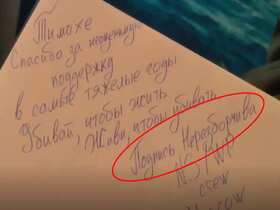 Тимохе
Спасибо за неоценимую
поддержку
в самые тяжелые годы
Убивай, чтобы жить
Живи, чтобы убивать
Подпись Неразборчива
NS/WP